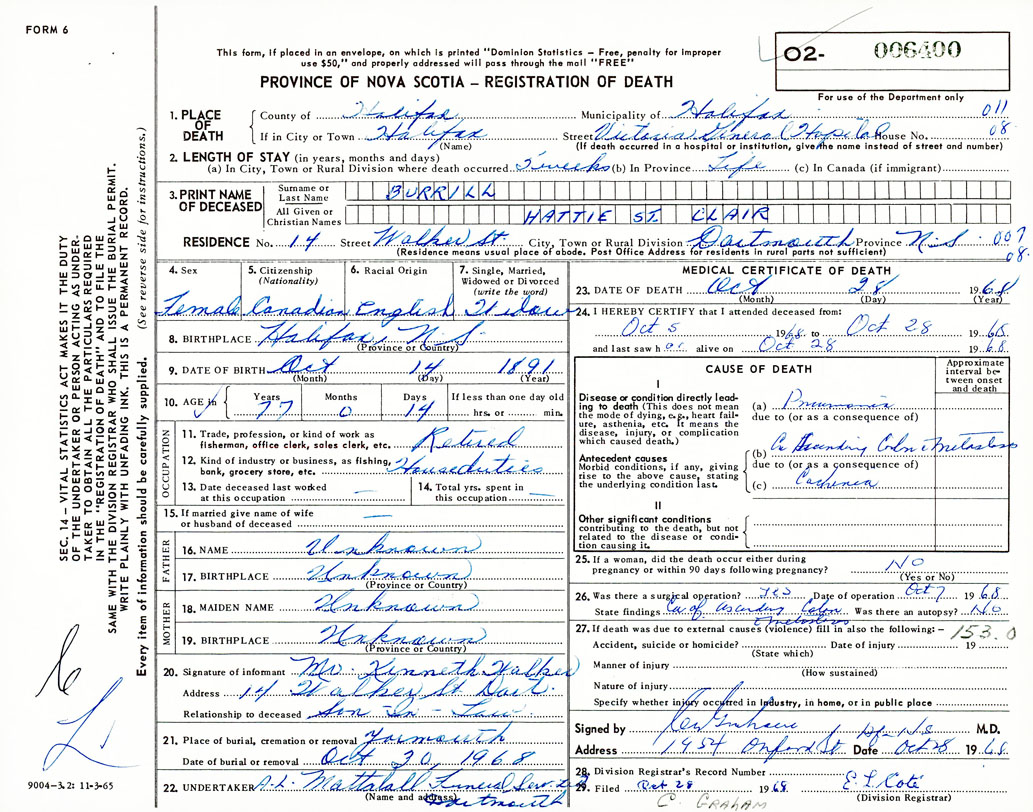 FORM 6
This form, if placed in an envelope, on which is printed "Dominion Statistics – Free, penalty for improper
use $50," and properly addressed will pass through the mail "FREE"
O2- 006400
PROVINCE OF NOVA SCOTIA – REGISTRATION OF DEATH
For use of the Department only
1. PLACE OF DEATH County of Halifax Municipality of Halifax 011
If in City or Town Halifax Street Victoria General Hospital House No. 08.
(Name) (If death occurred in a hospital or institution, give the name instead of street and number)
2. LENGTH OF STAY (in years, months and days)
(a) In City, Town or Rural Division where death occurred 3 weeks (b) In Province Life (c) In Canada (if immigrant)
3. PRINT NAME OF DECEASED Surname or Last Name BURRILL
All Given or Christian Names HATTIE ST. CLAIR
RESIDENCE No. 14 Street Walker St. City, Town or Rural Division Dartmouth Province N.S. 007
(Residence means usual place of abode. Post Office Address for residents in rural parts not sufficient) 08.
4. Sex Female
5. Citizenship (Nationality) Canadian
6. Racial Origin English
7. Single, Married, Widowed or Divorced (write the word) Widow
8. BIRTHPLACE Halifax, N S
(Province or Country)
9. DATE OF BIRTH Oct 14 1891
(Month) (Day) (Year)
10. AGE in Years 77 Months 0 Days 14 If less than one day old hrs. or min.
OCCUPATION
11. Trade, profession, or kind of work as fisherman, office clerk, sales clerk, etc. Retired
12. Kind of industry or business, as fishing, bank, grocery store, etc. Houseduties
13. Date deceased last worked at this occupation —
14. Total yrs. spent in this occupation —
15. If married give name of wife or husband of deceased —
FATHER
16. NAME Unknown
17. BIRTHPLACE Unknown
(Province or Country)
MOTHER
18. MAIDEN NAME Unknown
19. BIRTHPLACE Unknown
(Province or Country)
20. Signature of informant Mr. Kenneth Walker
Address 14 Walker St Dart.
Relationship to deceased Son-In-Law
21. Place of burial, cremation or removal Yarmouth
Date of burial or removal Oct 30, 1968
22. UNDERTAKER A.L. Mattatall Funeral Serv. Ltd
(Name and address) Dartmouth
MEDICAL CERTIFICATE OF DEATH
23. DATE OF DEATH Oct 28 1968
(Month) (Day) (Year)
24. I HEREBY CERTIFY that I attended deceased from:
Oct 5 1968 to Oct 28 1968
and last saw her alive on Oct 28 1968.
CAUSE OF DEATH
Approximate interval between onset and death
I
Disease or condition directly leading to death (This does not mean the mode of dying, e.g., heart failure, asthenia, etc. It means the disease, injury, or complication which caused death.)
(a) Pneumonia
due to (or as a consequence of)
Antecedent causes
Morbid conditions, if any, giving rise to the above cause, stating the underlying condition last.
(b) Ca Ascending Colon c Metastases
due to (or as a consequence of)
(c) Cachexia
II
Other significant conditions
contributing to the death, but not related to the disease or condition causing it.
25. If a woman, did the death occur either during pregnancy or within 90 days following pregnancy? NO
(Yes or No)
26. Was there a surgical operation? Yes Date of operation Oct 7 1968.
State findings Ca of ascending Colon c metastases Was there an autopsy? No
27. If death was due to external causes (violence) fill in also the following: – 153.0
Accident, suicide or homicide? Date of injury 19
(State which)
Manner of injury
(How sustained)
Nature of injury
Specify whether injury occurred in industry, in home, or in public place
Signed by M.D.
Address Oxford St. Date Oct 28 1968.
28. Division Registrar's Record Number
29. Filed Oct 28 1968. E. L. Coté
C. GRAHAM (Division Registrar)
SEC. 14 – VITAL STATISTICS ACT MAKES IT THE DUTY
OF THE UNDERTAKER OR PERSON ACTING AS UNDER-
TAKER TO OBTAIN ALL THE PARTICULARS REQUIRED
IN THE "REGISTRATION OF DEATH" AND TO FILE THE
SAME WITH THE DIVISION REGISTRAR WHO SHALL ISSUE THE BURIAL PERMIT.
WRITE PLAINLY WITH UNFADING INK. THIS IS A PERMANENT RECORD.
Every item of information should be carefully supplied. (See reverse side for instructions.)
9004-3.2: 11-3-65